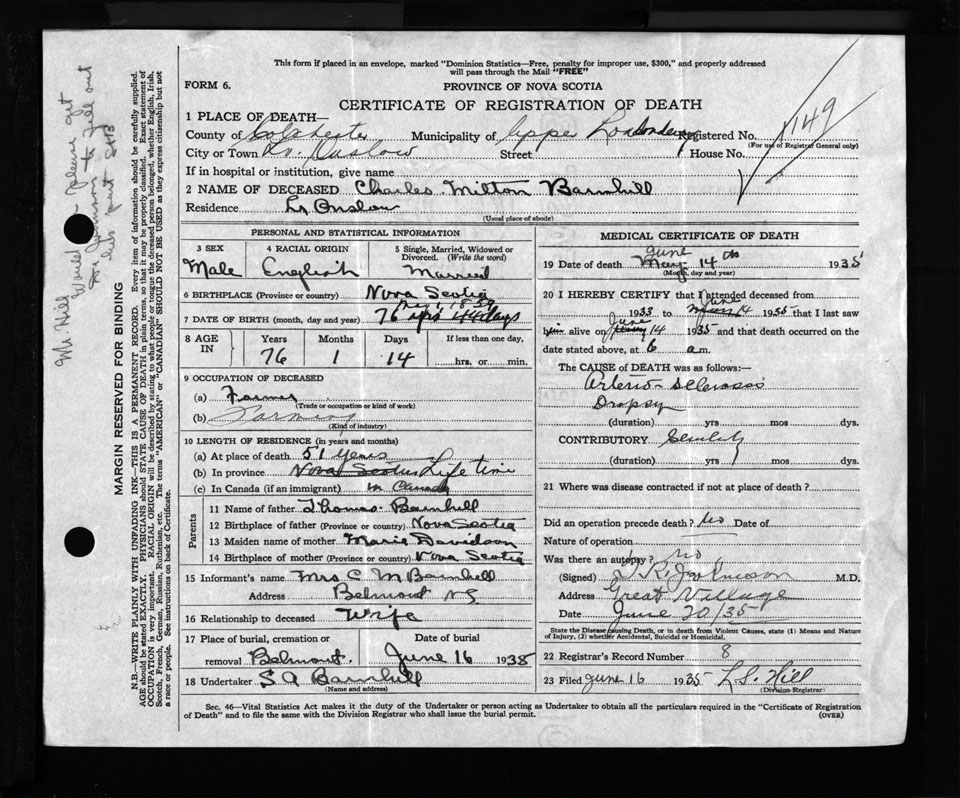 This form if placed in an envelope, marked "Dominion Statistics—Free, penalty for improper use, $300," and properly addressed
will pass through the Mail "FREE"
FORM 6.
PROVINCE OF NOVA SCOTIA
CERTIFICATE OF REGISTRATION OF DEATH
1 PLACE OF DEATH—
County of Colchester Municipality of Upper Londonderry Registered No. 149
(For use of Registrar General only)
City or Town Lr. Onslow Street House No.
If in hospital or institution, give name
2 NAME OF DECEASED Charles Milton Barnhill
Residence Lr Onslow
(Usual place of abode)
PERSONAL AND STATISTICAL INFORMATION
3 SEX 4 RACIAL ORIGIN 5 Single, Married, Widowed or Divorced. (Write the word)
Male English Married
6 BIRTHPLACE (Province or country) Nova Scotia
7 DATE OF BIRTH (month, day and year) 76 yrs 44 days
8 AGE IN Years Months Days If less than one day,
76 1 14 hrs. or min.
9 OCCUPATION OF DECEASED
(a) Farmer
(Trade or occupation or kind of work)
(b) Farming
(Kind of industry)
10 LENGTH OF RESIDENCE (in years and months)
(a) At place of death 51 years
(b) In province Nova Scotia Life time
(c) In Canada (if an immigrant) in Canada
Parents
11 Name of father Thomas Barnhill
12 Birthplace of father (Province or country) Nova Scotia
13 Maiden name of mother Marie Davidson
14 Birthplace of mother (Province or country) Nova Scotia
15 Informant's name Mrs C M Barnhill
Address Belmont NS
16 Relationship to deceased Wife
17 Place of burial, cremation or removal Belmont. Date of burial June 16 1935
18 Undertaker S A Barnhill
(Name and address)
MEDICAL CERTIFICATE OF DEATH
June
19 Date of death May 14th 1935
(Month, day and year)
20 I HEREBY CERTIFY that I attended deceased from
1933 to June 14 1935 that I last saw
him alive on June 14 1935 and that death occurred on the
date stated above, at 6 a.m.
The CAUSE of DEATH was as follows:—
Arterio-Sclerosis
Dropsy
(duration) yrs mos dys.
CONTRIBUTORY Senility
(duration) yrs mos dys.
21 Where was disease contracted if not at place of death?
Did an operation precede death? No Date of
Nature of operation
Was there an autopsy? no
(Signed) T R Johnson M.D.
Address Great Village
Date June 20/35
State the Disease causing Death, or in death from Violent Causes, state (1) Means and Nature
of Injury, (2) whether Accidental, Suicidal or Homicidal.
22 Registrar's Record Number 8
23 Filed June 16 1935 L.S. Hill
(Division Registrar)
Sec. 46—Vital Statistics Act makes it the duty of the Undertaker or person acting as Undertaker to obtain all the particulars required in the "Certificate of Registration
of Death" and to file the same with the Division Registrar who shall issue the burial permit.
(OVER)
MARGIN RESERVED FOR BINDING
N.B.—WRITE PLAINLY WITH UNFADING INK—THIS IS A PERMANENT RECORD. Every item of information should be carefully supplied.
AGE should be stated EXACTLY. PHYSICIANS should STATE CAUSE OF DEATH in plain terms, so that it may be properly classified. Exact statement of
OCCUPATION is very important. RACIAL ORIGIN will be described by stating to what people or tongue the deceased person belonged, whether English, Irish,
Scotch, French, German, Russian, Ruthenian, etc. The terms "AMERICAN" or "CANADIAN" SHOULD NOT BE USED as they express citizenship but not
a race or people. See instructions on back of Certificate.
Mr Hill
Would you please get
Dr Johnson to fill out
his part